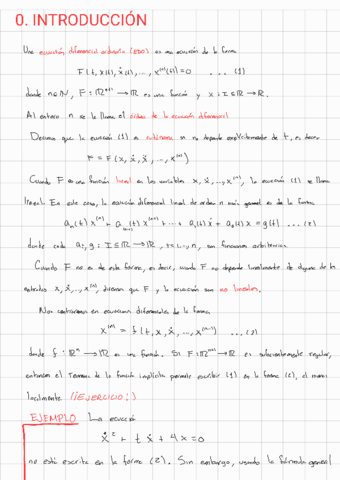 0. INTRODUCCIÓN
Una ecuación diferencial ordinaria (EDO) es una ecuación de la forma
F(t, x(t), ẋ(t), ..., x⁽ⁿ⁾(t)) = 0 ... (1)
donde n∈ℕ, F: ℝⁿ⁺² → ℝ es una función y x: I⊆ℝ → ℝ.
Al entero n se le llama el orden de la ecuación diferencial
Decimos que la ecuación (1) es autónoma si no depende explícitamente de t, es decir
F = F(x, ẋ, ẍ, ..., x⁽ⁿ⁾)
Cuando F es una función lineal en las variables x, ẋ, ..., x⁽ⁿ⁾, la ecuación (1) se llama
lineal. En este caso, la ecuación diferencial lineal de orden n más general es de la forma
aₙ(t) x⁽ⁿ⁾ + aₙ₋₁(t) x⁽ⁿ⁻¹⁾ + ... + a₁(t) ẋ + a₀(t) x = g(t) ... (2)
donde cada aᵢ, g: I⊆ℝ → ℝ, i=1,...,n, son funciones arbitrarias.
Cuando F no es de esta forma, es decir, cuando F no depende linealmente de alguna de las
variables x, ẋ, ..., x⁽ⁿ⁾, diremos que F y la ecuación son no lineales.
Nos centraremos en ecuaciones diferenciales de la forma
x⁽ⁿ⁾ = f(t, x, ẋ, ..., x⁽ⁿ⁻¹⁾) ... (3)
donde f: → ℝ es una función. Si F: → ℝ es suficientemente regular,
entonces el Teorema de la función implícita permite escribir (1) en la forma (2), al menos
localmente (¡EJERCICIO!)
EJEMPLO La ecuación
ẋ² + tẋ + 4x = 0
no está escrita en la forma (2). Sin embargo, usando la fórmula general